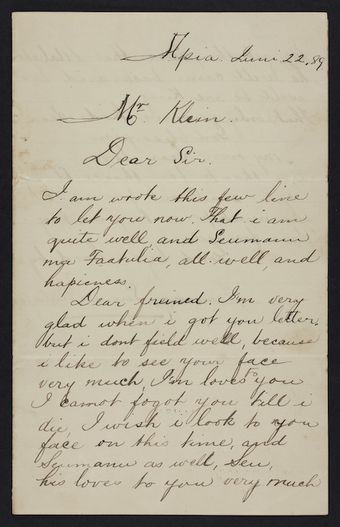 Apia. Juni 22. 89
Mr Klein.
Dear Sir.
I am wrote this few line
to let you now. That i am
quite well, and Seumanu
ma Faatulia, all well, and
hapieness.
Dear freined. I'm very
glad when i got you letter.
but i dont field well, because
i like to see your face
very much, I'm loves to you
I cannot fogot you till i
die, I wish i look to you
face on this time, and
Seumanu as well, Seu,
his loves to you very much